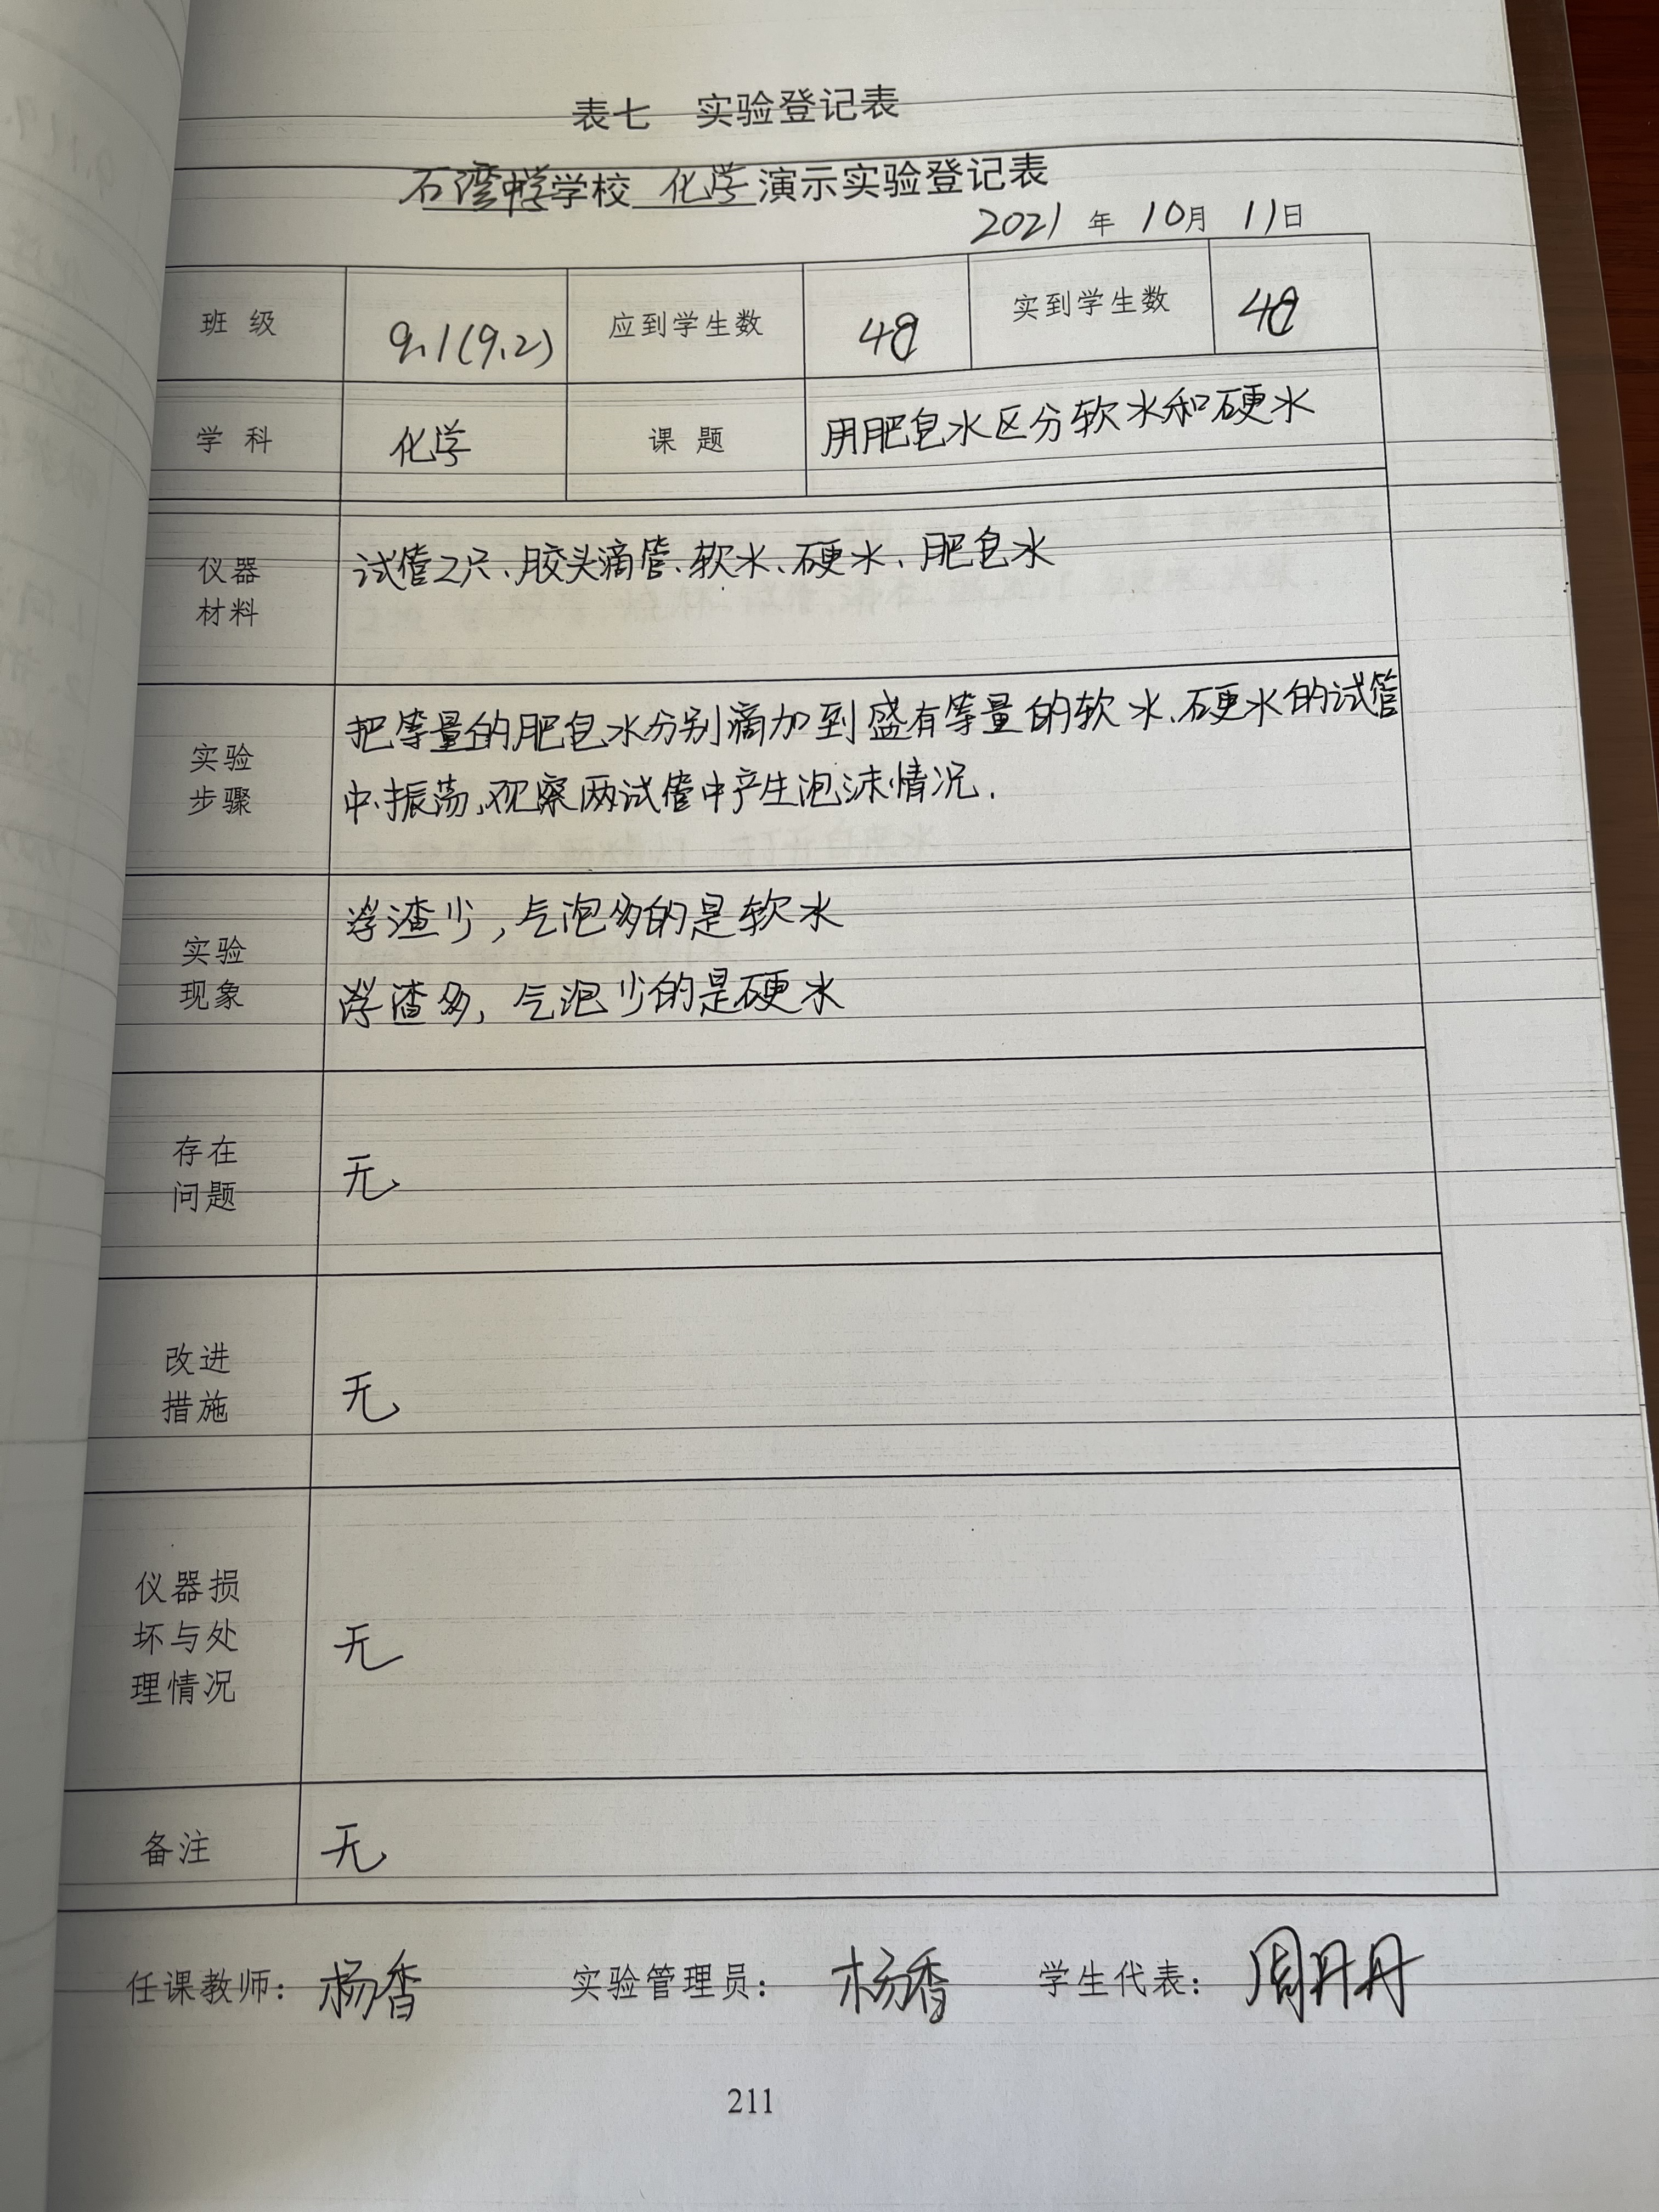 表七 实验登记表
石湾中学学校 化学 演示实验登记表
2021 年 10月 11日
班 级 9.1(9.2) 应到学生数 48 实到学生数 48
学 科 化学 课 题 用肥皂水区分软水和硬水
仪器
材料
试管2只、胶头滴管、软水、硬水、肥皂水
实验
步骤
把等量的肥皂水分别滴加到盛有等量的软水、硬水的试管
中、振荡,观察两试管中产生泡沫情况.
实验
现象
浮渣少,气泡多的是软水
浮渣多,气泡少的是硬水
存在
问题
无
改进
措施
无
仪器损
坏与处
理情况
无
备注 无
任课教师: 杨香 实验管理员: 杨香 学生代表: 周丹丹
211